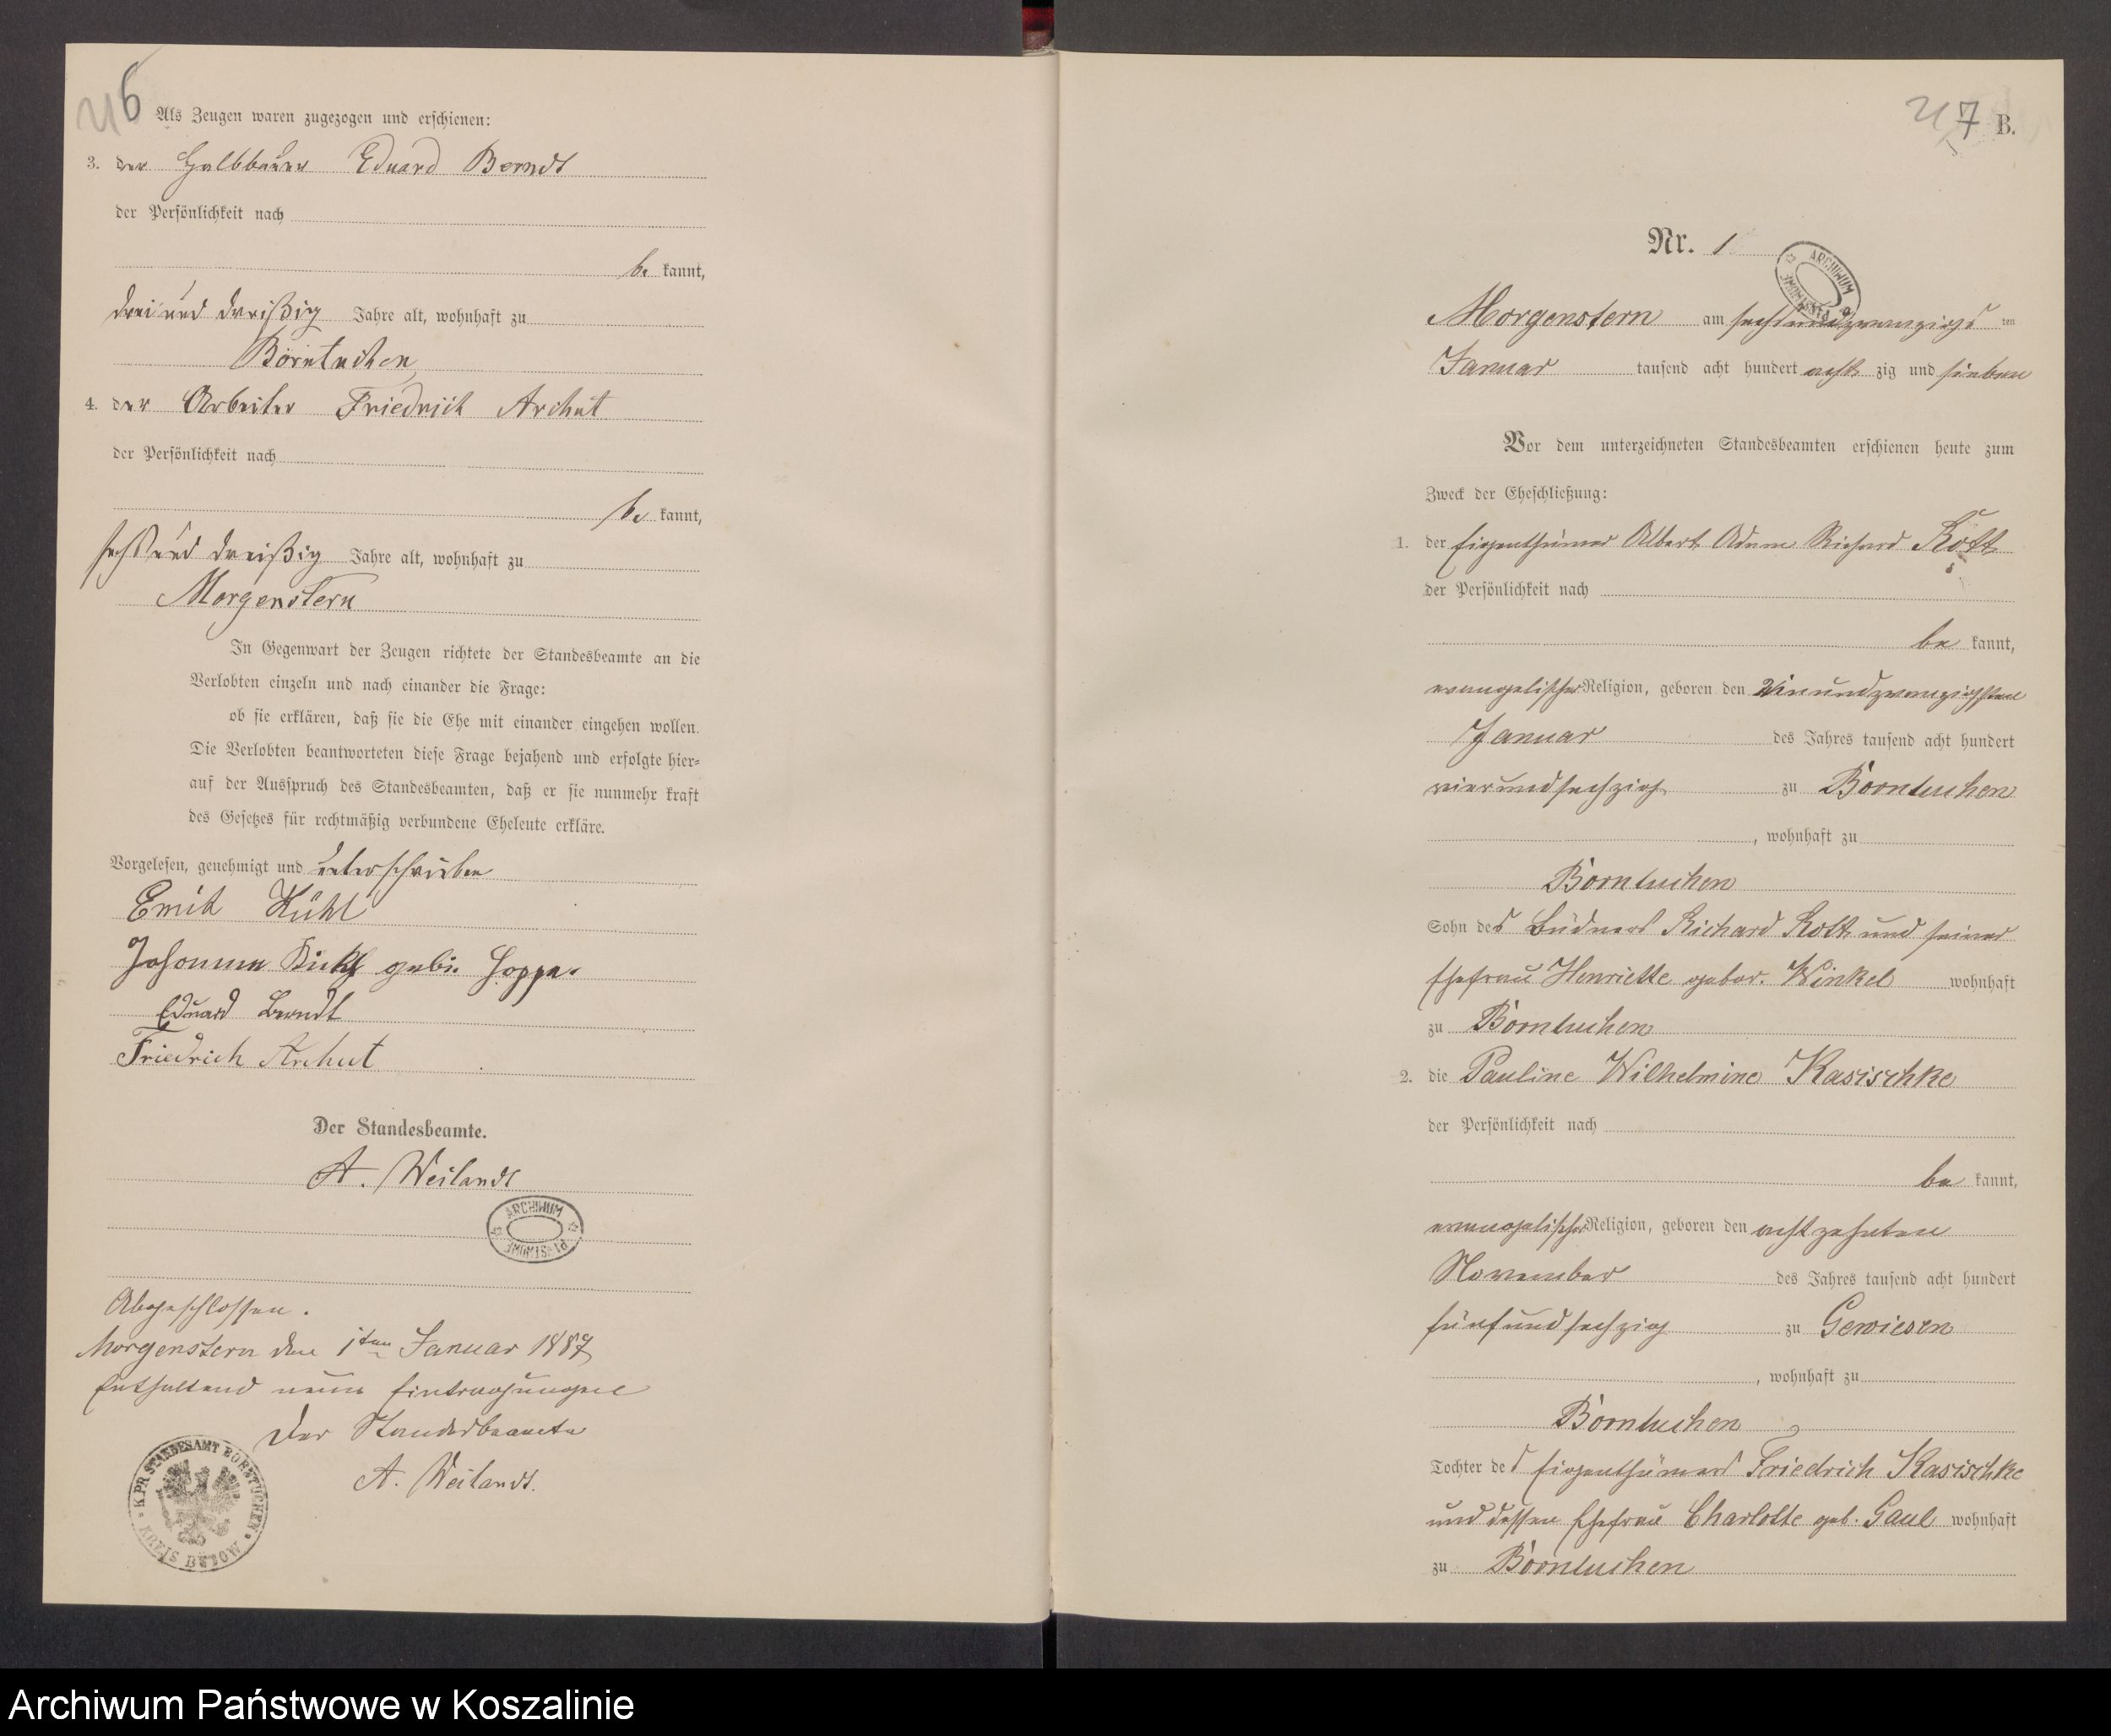 6
Als Zeugen waren zugezogen und erschienen:
3. der Halbbauer Eduard Berndt
der Persönlichkeit nach
be kannt,
drei und dreißig Jahre alt, wohnhaft zu
Borntuchen
4. der Arbeiter Friedrich Archut
der Persönlichkeit nach
be kannt,
sechs und dreißig Jahre alt, wohnhaft zu
Morgenstern
In Gegenwart der Zeugen richtete der Standesbeamte an die
Verlobten einzeln und nach einander die Frage:
ob sie erklären, daß sie die Ehe mit einander eingehen wollen.
Die Verlobten beantworteten diese Frage bejahend und erfolgte hier=
auf der Ausspruch des Standesbeamten, daß er sie nunmehr kraft
des Gesetzes für rechtmäßig verbundene Eheleute erkläre.
Vorgelesen, genehmigt und unterschrieben
Emil Kühl
Johanna geb. Hoppe.
Eduard Berndt
Friedrich Archut
Der Standesbeamte.
A. Weilandt
ARCHIWUM PAŃSTWOWE
Abgeschlossen.
Morgenstern den 1ten Januar 1887
Enthaltend neun Eintragungen
Der Standesbeamte
A. Weilandt.
K.PR STANDESAMT BORNTUCHEN
KREIS BÜTOW
7 B.
Nr. 1
ARCHIWUM PAŃSTWOWE
Morgenstern am sechsundzwanzigs ten
Januar tausend acht hundert acht zig und sieben
Vor dem unterzeichneten Standesbeamten erschienen heute zum
Zweck der Eheschließung:
1. der Eigenthümer Albert Adam Richard Kott
der Persönlichkeit nach
be kannt,
evangelischer Religion, geboren den einundzwanzigsten
Januar des Jahres tausend acht hundert
vierundsechzig zu Borntuchen
, wohnhaft zu
Borntuchen
Sohn des Büdners Richard Kott und seiner
Ehefrau Henriette gebor. Winkel wohnhaft
zu Borntuchen
2. die Pauline Wilhelmine Kasischke
der Persönlichkeit nach
be kannt,
evangelischer Religion, geboren den achtzehnten
November des Jahres tausend acht hundert
fünfundsechzig zu Gewiesen
, wohnhaft zu
Borntuchen
Tochter des Eigenthümers Friedrich Kasischke
und dessen Ehefrau Charlotte geb. Gaul wohnhaft
zu Borntuchen
Archiwum Państwowe w Koszalinie